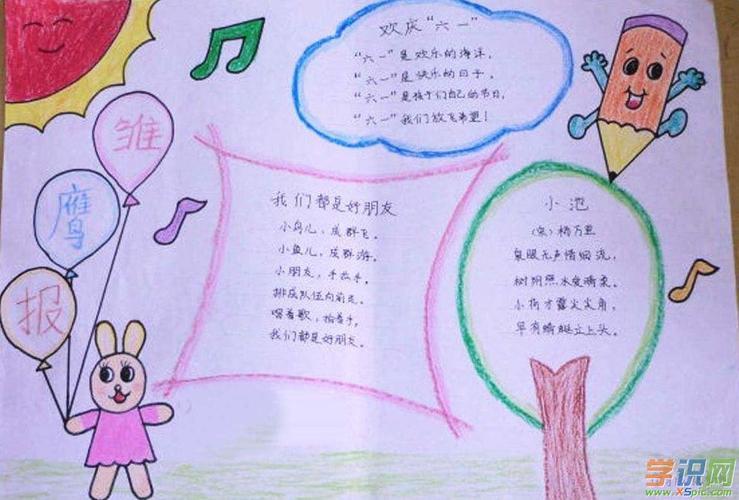 雏
鹰
报
欢庆“六一”
“六一”是欢乐的海洋，
“六一”是快乐的日子，
“六一”是孩子们自己的节日，
“六一”我们放飞希望！
我们都是好朋友
小鸟儿，成群飞。
小鱼儿，成群游。
小朋友，手拉手，
排成队伍向前走。
唱着歌，拍着手，
我们都是好朋友。
小池
（宋）杨万里
泉眼无声惜细流，
树阴照水爱晴柔。
小荷才露尖尖角，
早有蜻蜓立上头。
学识网
www.xSpic.com